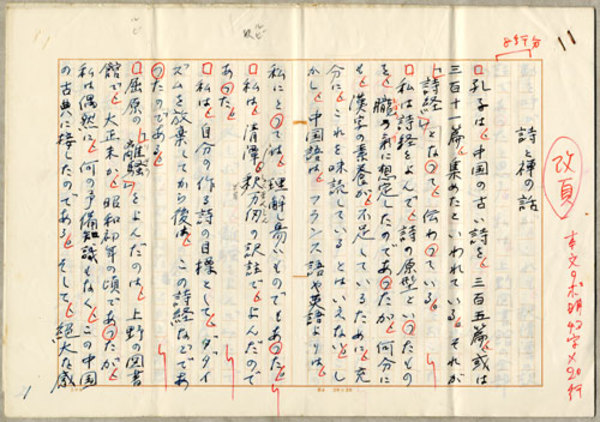 改頁
本文9ポ明42字×20行
8行分
詩と禅の話
孔子は、中国の古い詩を、三百五篇、或は
三百十一篇、集めたといわれている。それが
「詩経」となって、伝わっている。
私は詩経をよんで、詩の原型といったもの
を、朧ろ気に想定したのであったが、何分に
も漢字の素養が、不足しているために、充
分に、これを味読しているとはいえない。し
かし、中国語は、フランス語や英語よりは、
私にとっては、理解し易いものでもあった。
私は、清潭、釈の訳註で、よんだので
あった。
私は、自分の作る詩の目標として、ダダイ
ズムを放棄してから後は、この詩経などであ
ったのである。
屈原の「離騒」をよんだのは、上野の図書
館で、大正末か、昭和初年の頃であったが、
私は偶然に、何の予備知識もなく、この中国
の古典に接したのである。そして、絶大な感
ルビ